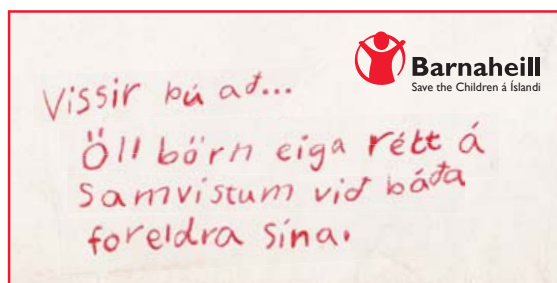 Barnaheill
Save the Children á Íslandi
Vissir þú að...
Öll börn eiga rétt á
samvistum við báða
foreldra sína.